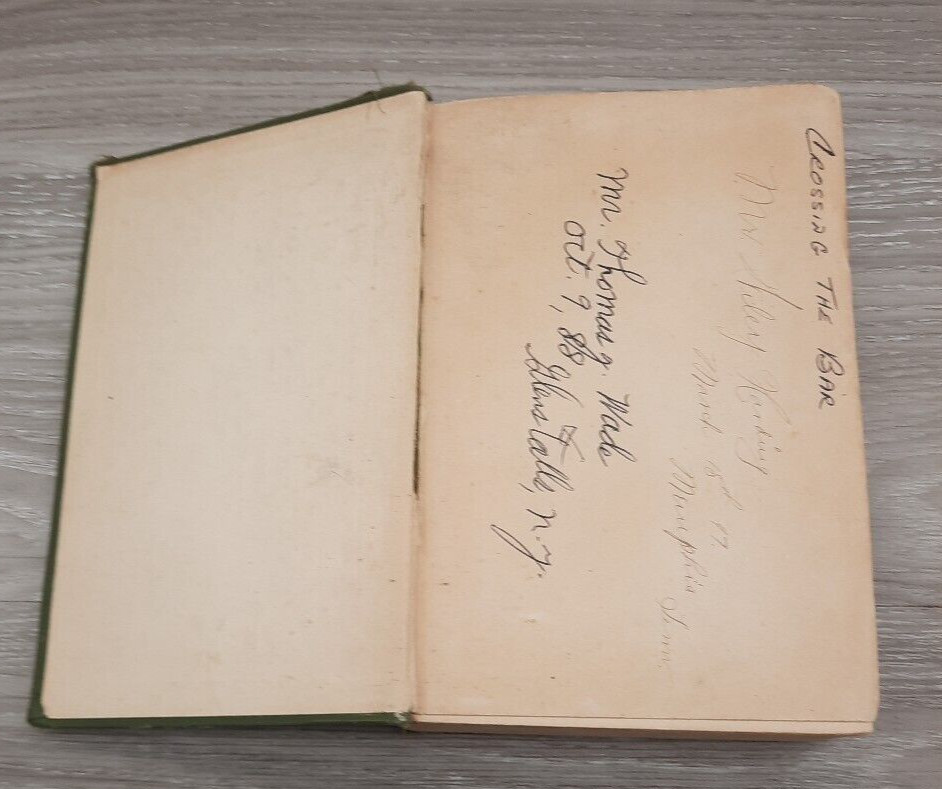 CROSSING THE BAR
Mrs Wiley Harding
March 15th 17.
Memphis Tenn.
Mr. Thomas J. Wade
Oct. 9, 88
Glens Falls, N.Y.